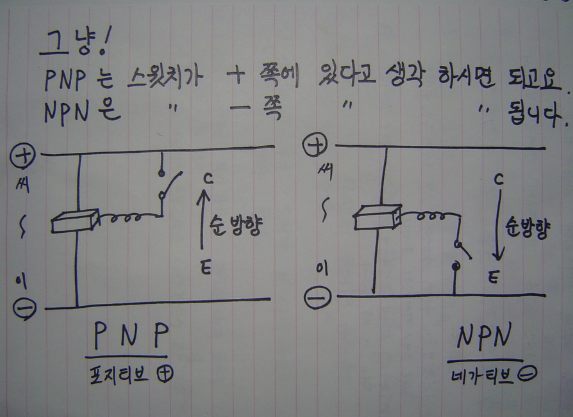 그냥!
PNP 는 스윗치가 + 쪽에 있다고 생각 하시면 되고요.
NPN 은 〃 - 쪽 〃 〃 됩니다.
+
씨
이
-
C
순방향
E
PNP
포지티브 +
+
씨
이
-
C
순방향
E
NPN
네가티브 -